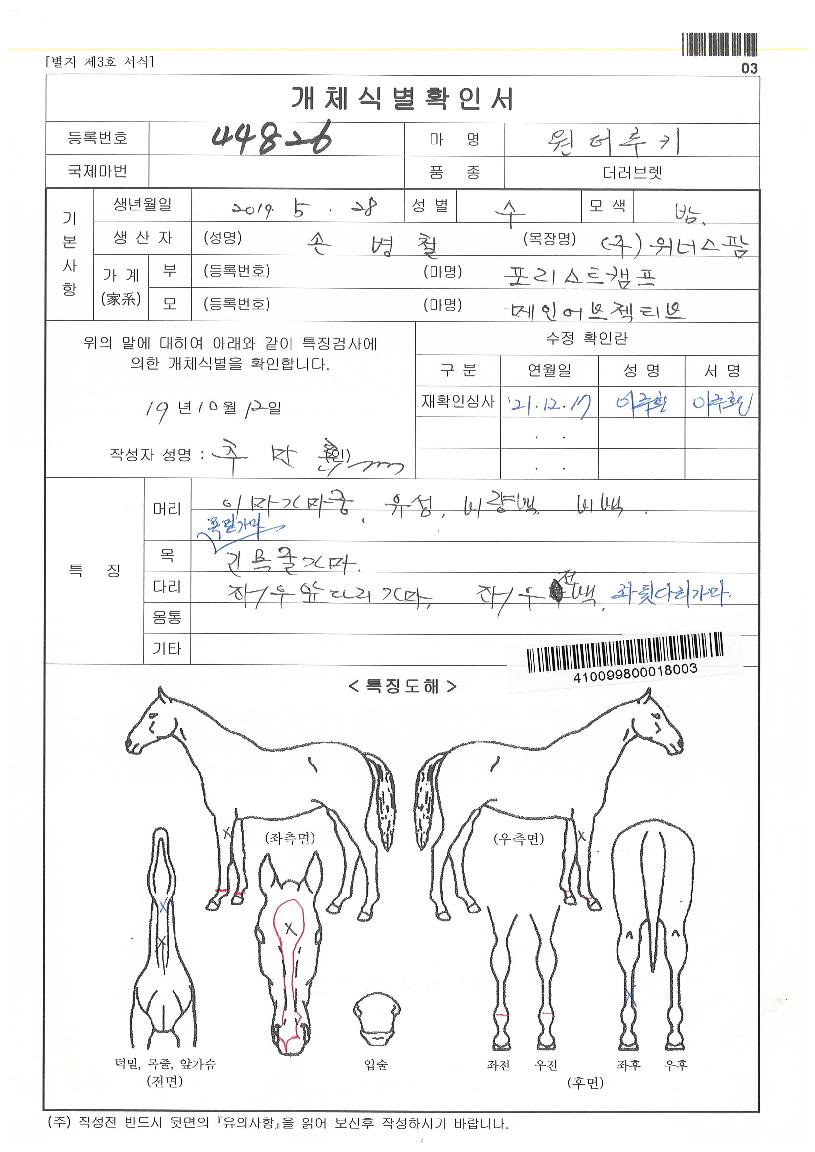 [별지 제3호 서식]
03
개체식별확인서
등록번호 44826 마 명 원더루키
국제마번 품 종 더러브렛
기본사항
생년월일 2019. 5. 28 성별 수 모색 밤.
생산자 (성명) 손병철 (목장명) (주)위너스팜
가계 (家系) 부 (등록번호) (마명) 포리스트캠프
모 (등록번호) (마명) 메인어브젝티브
위의 말에 대히여 아래와 같이 특징검사에
의한 개체식별을 확인합니다.
19년 10월 12일
작성자 성명 : (인)
수정 확인란
구 분 연월일 성 명 서 명
재확인심사 '21.12.17
. .
. .
특 징
머리 이마가마중, 유성, 비량백, 비백.
턱밑가마
목 긴목줄가마.
다리 좌/우앞다리가마, 좌/우 전백, 좌뒷다리가마.
몸통
기타
410099800018003
<특징도해>
(좌측면)
(우측면)
턱밑, 목줄, 앞가슴
(전면)
입술
좌전 우진
좌후 우후
(후면)
(주) 작성전 반드시 뒷면의 『유의사항』을 읽어 보신후 작성하시기 바랍니다.